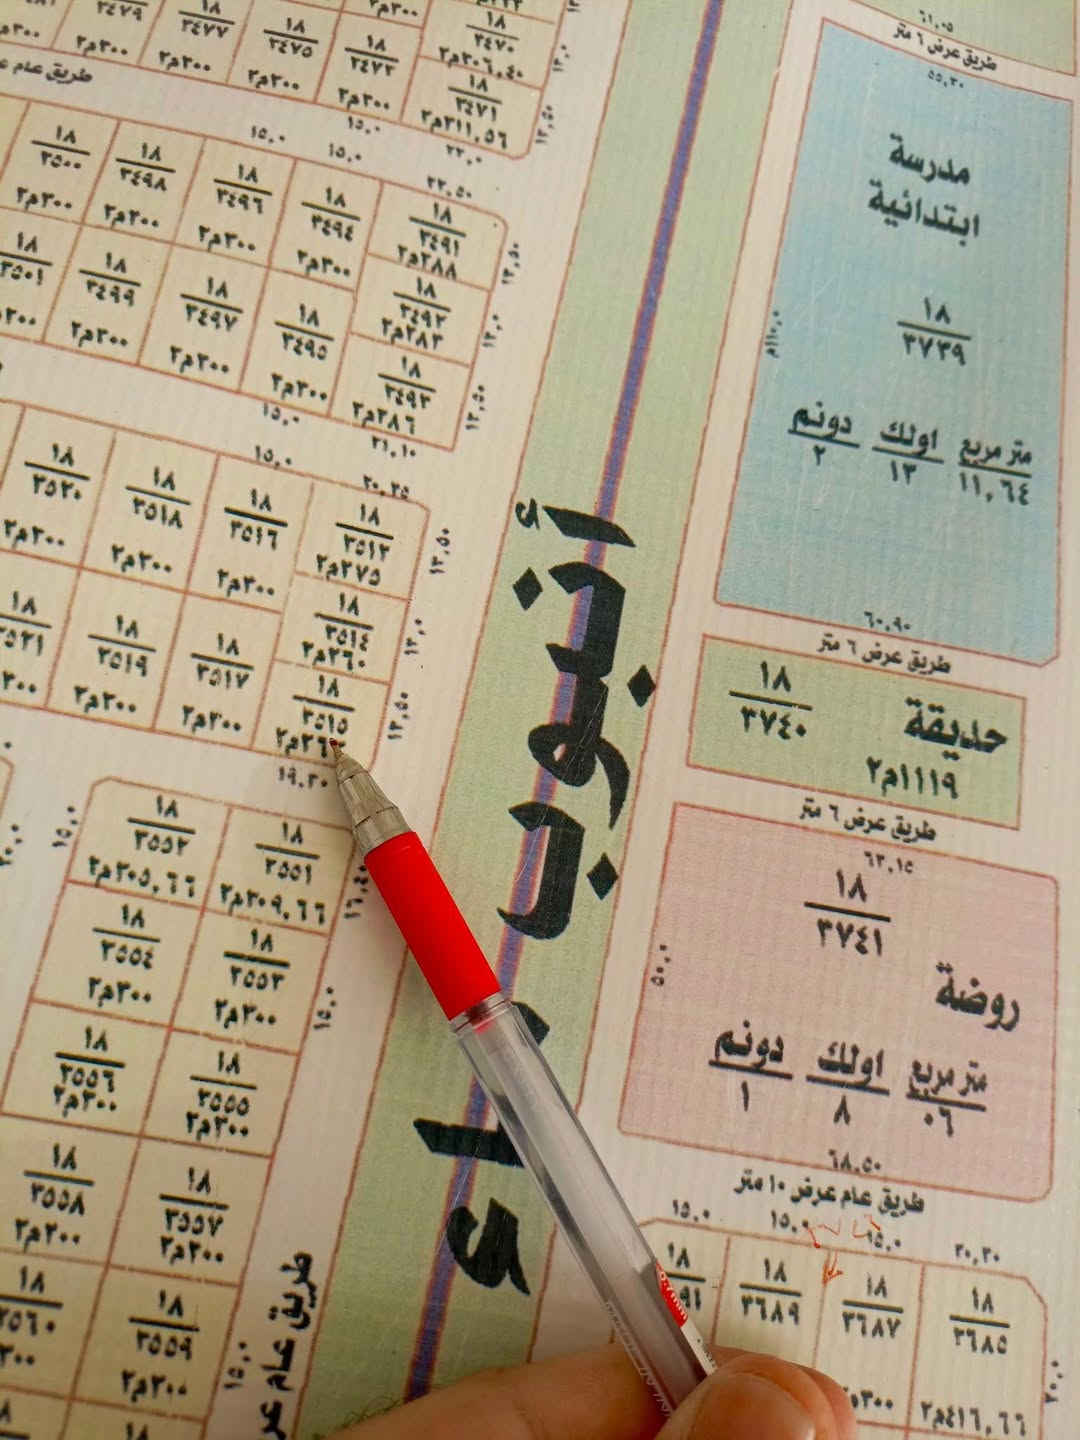 ٣٤٧٩
٣٠٠م٢
١٨
٣٤٧٧
٣٠٠م٢
١٨
٣٤٧٥
٣٠٠م٢
٣٠٠م٢
١٨
٣٤٧٣
٣٠٠م٢
١٨
٣٤٧٠
٣٠٦,٤٠م٢
١٨
٣٤٧١
٣١١,٥٦م٢
١٣,٥٠
طريق عام
١٥,٠
١٥,٠
١٥,٠
٢٢,٠
٢٢,٥٠
١٨
٣٥٠٠
٣٠٠م٢
١٨
٣٤٩٨
٣٠٠م٢
١٨
٣٤٩٦
٣٠٠م٢
١٨
٣٤٩٤
٣٠٠م٢
١٨
٣٤٩١
٢٨٨م٢
١٣,٥٠
١٨
٣٤٩٢
٢٨٣م٢
١٣,٠
١٨
٣٤٩٣
٢٨٦م٢
١٣,٥٠
١٨
٣٥٠١
١٨
٣٤٩٩
٣٠٠م٢
١٨
٣٤٩٧
٣٠٠م٢
١٨
٣٤٩٥
٣٠٠م٢
١٥,٠
٢١,١٠
١٥,٠
٢٠,٣٥
١٨
٣٥٢٠
٣٠٠م٢
١٨
٣٥١٨
٣٠٠م٢
١٨
٣٥١٦
٣٠٠م٢
١٨
٣٥١٣
٢٧٥م٢
١٣,٥٠
١٨
٣٥١٤
٢٦٠م٢
١٣,٠
١٨
٣٥١٥
١٣,٥٠
١٨
٣٥٢١
١٨
٣٥١٩
٣٠٠م٢
١٨
٣٥١٧
٣٠٠م٢
١٩,٣٠
١٥,٠
١٨
٣٥٥٢
٣٠٥,٦٦م٢
١٨
٣٥٥١
٣٠٩,٦٦م٢
١٦,٤٠
١٨
٣٥٥٤
٣٠٠م٢
١٨
٣٥٥٣
٣٠٠م٢
١٥,٠
١٨
٣٥٥٦
٣٠٠م٢
١٨
٣٥٥٥
٣٠٠م٢
١٨
٣٥٥٨
٣٠٠م٢
١٨
٣٥٥٧
٣٠٠م٢
١٨
٣٥٦٠
١٨
٣٥٥٩
٣٠٠م٢
١٥,٠
طريق عام
أنبوب
٦١,٠٥
طريق عرض ٦ متر
٥٥,٣٠
مدرسة
ابتدائية
١٨
٣٧٣٩
١١٠,٠م
متر مربع اولك دونم
١١,٦٤ ١٣ ٢
٦٠,٩٠
طريق عرض ٦ متر
١٨
٣٧٤٠
حديقة
١١١٩م٢
طريق عرض ٦ متر
٦٣,١٥
١٨
٣٧٤١
٥٠,٠
روضة
متر مربع اولك دونم
٠٦ ٨ ١
٦٨,٥٠
طريق عام عرض ١٠ متر
١٥,٠
١٥,٠
١٥,٠
٢٠,٣٠
١٨
١٨
٣٦٨٩
١٨
٣٦٨٧
١٨
٣٦٨٥
٤١٦,٦٦م٢
٢٠,٠